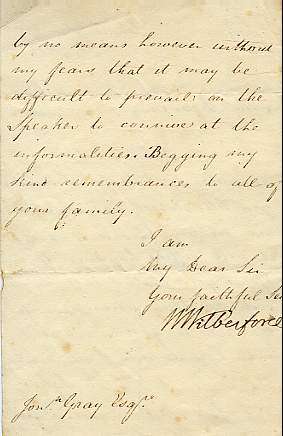 by no means however without
my fears that it may be
difficult to prevail on the
Speaker to connive at the
informalities. Begging my
kind remembrances to all of
your family.
I am
My Dear Sir
Your faithful Ser
W Wilberforce
Jonn Gray Esqr.